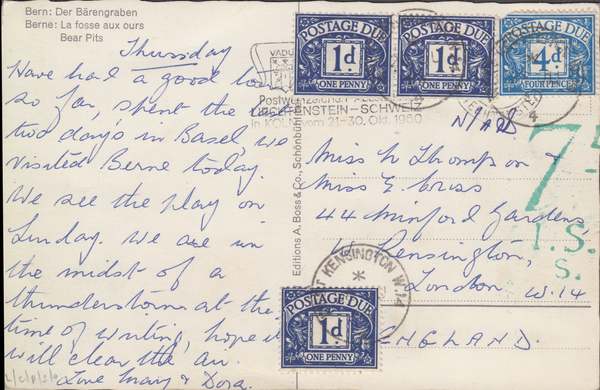 Bern: Der Bärengraben
Berne: La fosse aux ours
Bear Pits
Thursday
Have had a good tour
so far, spent the last
two days in Basel, we
visited Berne today.
We see the play on
Sunday. We are in
the midst of a
thunderstorm at the
time of writing, hope it
will clear the air.
Love Mary & Dora.
Editions A. Boss & Co., Schönbühl
VADUZ
LIECHTENSTEIN – SCHWEIZ
in KÖLN vom 21–30. Okt. 1960
POSTAGE DUE
1d
ONE PENNY
POSTAGE DUE
1d
ONE PENNY
POSTAGE DUE
4d
FOUR PENCE
4
Miss N Thompson &
Miss E.
44 Minford Gardens
W. Kensington,
London W.14
ENGLAND.
7
I.S.
S.
KENSINGTON W.14
POSTAGE DUE
1d
ONE PENNY